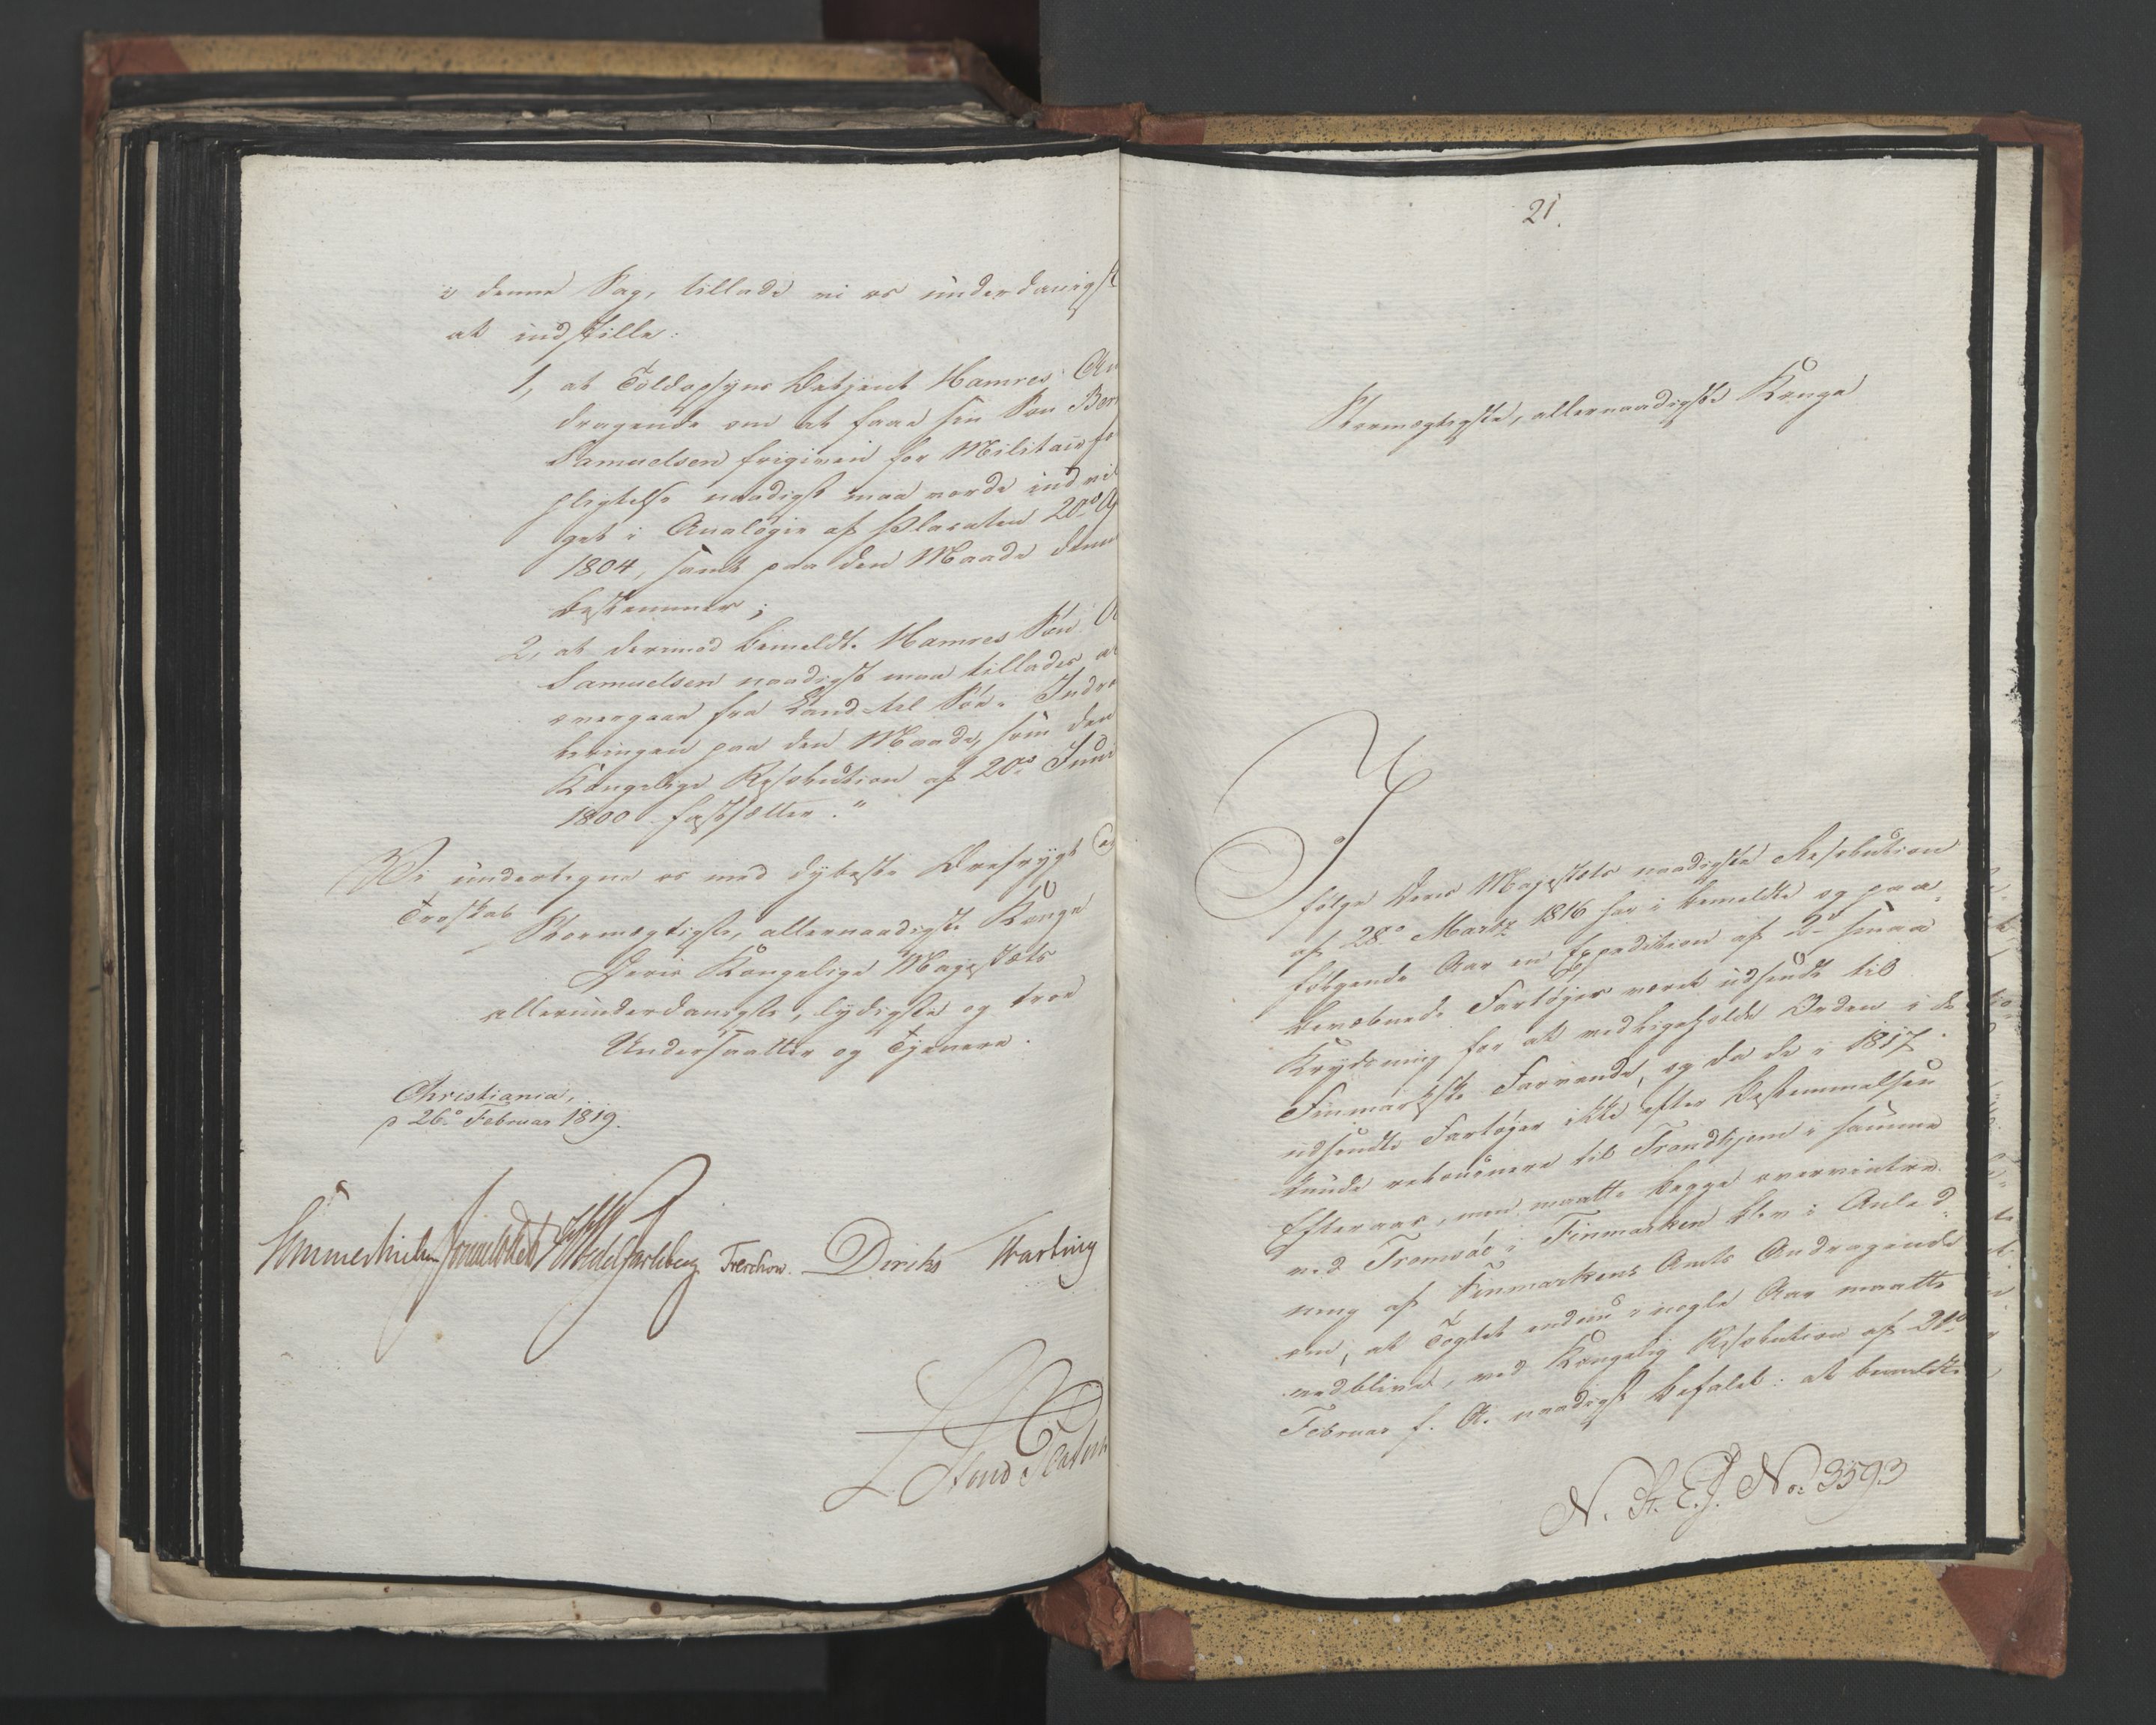 i denne Sag, tillade vi os underdanigst
at indstille:
1, at Toldopsyns Betjent Hamres An
dragende om at faae sin Søn Ber
Samuelsen frigiven for Militair for
pligtelse naadigst maa vorde indvil
get i Analogie af Placaten 20de
1804, samt paa den Maade denne
bestemmer;
2, at derimod bemeldte Hamres Søn
Samuelsen naadigst maa tillades at
overgaae fra Land til Søe-Indro
leringen paa den Maade, som den
Kongelige Resolution af 20de Juni
1800 fastsætter."
Vi undertegne os med dybeste Ærefrygt og
Troskab
Stormægtigste, allernaadigste Konge
Deres Kongelige Majestæts
allerunderdanigste, lydigste og troe
Undersaatter og Tjenere.
Christiania,
d 26de Februar 1819.
Sommerhielm Wedel Jarlsberg Treschow. Diriks
21.
Stormægtigste, allernaadigste Konge
I
følge Deres Majestæts naadigste Resolution
af 28de Martz 1816 har i bemeldte og paa-
følgende Aar en Expedition af 2de smaa
bevæbnede Fartøjer været udsendt til
Krydsning for at vedligeholde Orden i de
Finmarkske Farvande, og da de i 1817
udsendte Fartøjer ikke efter Bestemmelsen
kunde retournere til Trondhjem i samme
Efteraar, men maatte begge overvintre
ved Tromsöe i Finmarken blev i Anled-
ning af Finmarkens Amts Andragende
om, at Togtet endnu i nogle Aar maatte
vedblive, ved Kongelig Resolution af 21de
Februar f. A. naadigst befalet: at bemeldte
N. St. E. J. No: 3593